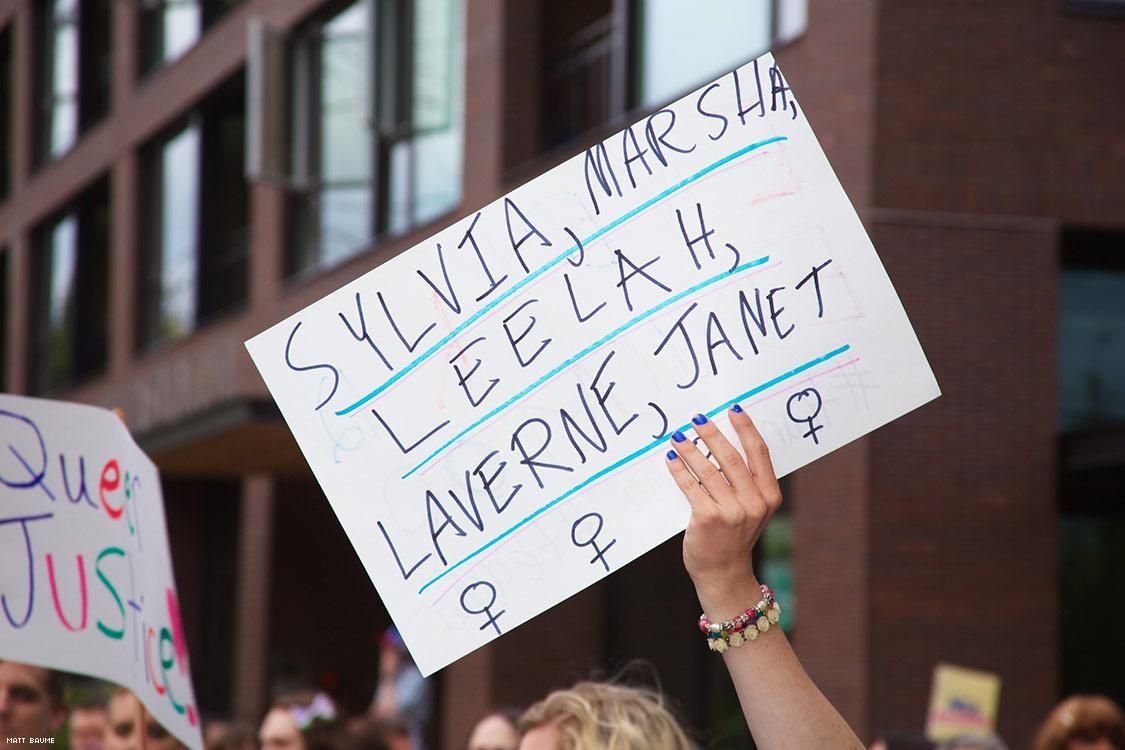 SYLVIA, MARSHA,
LEELAH,
LAVERNE, JANET
♀ ♀ ♀
Queer
Justice!
MATT BAUME